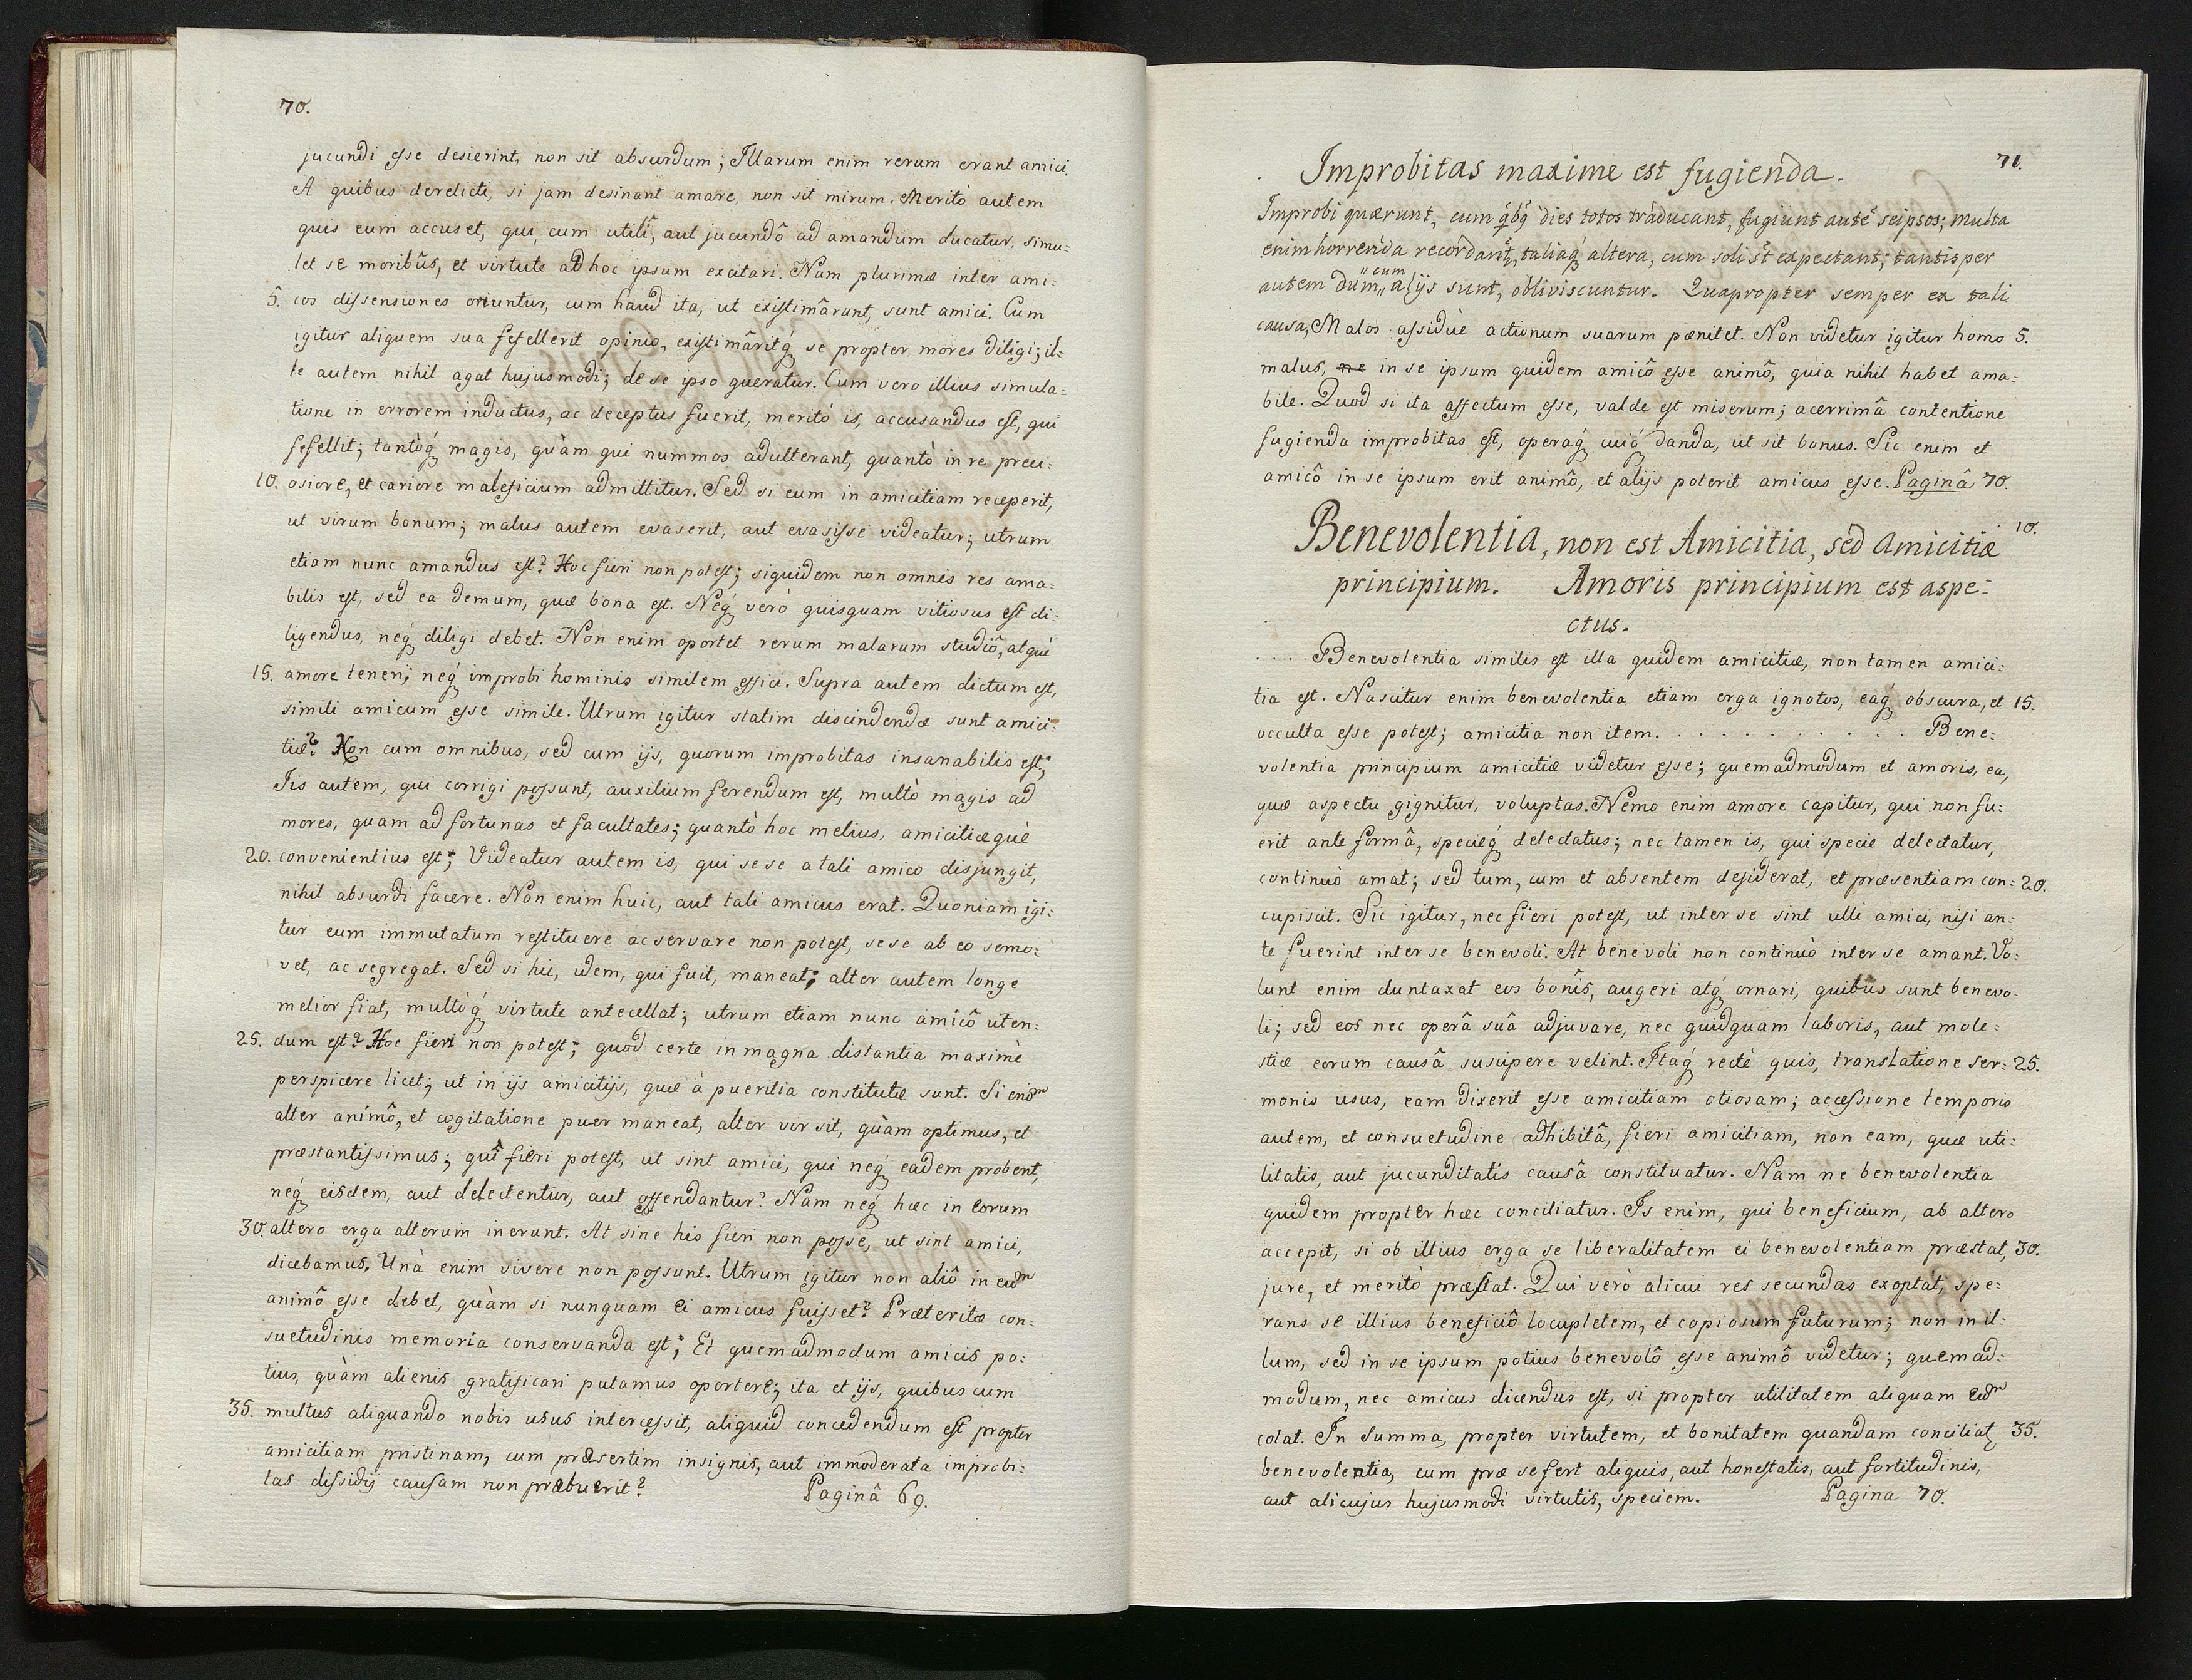 70.
jucundi esse desierint, non sit absurdum; Illarum enim rerum erant amici.
A quibus derelicti, si jam desinant amare, non sit mirum. Meritò autem
quis eum accuset, qui, cum utili, aut jucundô ad amandum ducatur, simu:
let se moribûs, et virtute ad hoc ipsum excitari. Nam plurimæ inter ami:
5. cos dissensiones oriuntur, cum haud ita, ut existimârunt, sunt amici. Cum
igitur aliquem sua fefellerit opinio, existimâritq́ se propter mores diligi; il:
le autem nihil agat hujusmodi; de se ipso queratur. Cum vero illius simula:
tione in errorem inductus, ac deceptus fuerit, meritò is, accusandus est, qui
fefellit; tantòq́ magis, quàm qui nummos adulterant, quantò in re preci:
10. osiore, et cariore maleficium admittitur. Sed si eum in amicitiam receperit,
ut virum bonum; malus autem evaserit, aut evasisse videatur; utrum
etiam nunc amandus est? Hoc fieri non potest; siquidem non omnis res ama:
bilis est, sed ea demum, quæ bona est. Neq́ verò quisquam vitiosus est di:
ligendus, neq́ diligi debet. Non enim oportet rerum malarum studiô, atquè
15. amore teneri; neq́ improbi hominis similem effici. Supra autem dictum est,
simili amicum esse simile. Utrum igitur statim discindendæ sunt amici:
tiæ? Non cum omnibus, sed cum ijs, quorum improbitas insanabilis est;
Iis autem, qui corrigi possunt, auxilium ferendum est, multò magis ad
mores, quam ad fortunas et facultates; quantò hoc melius, amicitiæquè
20. convenientius est; Videatur autem is, qui sese a tali amico disjungit,
nihil absurdi facere. Non enim huic, aut tali amicus erat. Quoniam igi:
tur eum immutatum restituere ac servare non potest, sese ab eo semo:
vet, ac segregat. Sed si hic, idem, qui fuit, maneat; alter autem longe
melior fiat, multòq́ virtute antecellat; utrum etiam nunc amicô uten:
25. dum est? Hoc fieri non potest; quod certe in magna distantia maximè
perspicere licet; ut in ijs amicitijs, quæ à pueritia constitutæ sunt. Si enim
alter animô, et cogitatione puer maneat, alter vir sit, quàm optimus, et
præstantissimus; quî fieri potest, ut sint amici, qui neq́ eadem probent,
neq́ eisdem, aut delectentur, aut offendantur? Nam neq́ hæc in eorum
30. altero erga alterum inerunt. At sine his fieri non posse, ut sint amici,
dicebamus. Unà enim vivere non possunt. Utrum igitur non aliô in eum
animô esse debet, quàm si nunquam ei amicus fuisset? Præteritæ con:
suetudinis memoria conservanda est; Et quemadmodum amicis po:
tius, quàm alienis gratificari putamus oportere; ita et ijs, quibus cum
35. multus aliquando nobis usus intercessit, aliquid concedendum est propter
amicitiam pristinam, cum præsertim insignis, aut immoderata improbi:
tas dissidij causam non præbuerit? Paginâ 69.
71.
Improbitas maxime est fugienda.
Improbi quærunt, cum q́bq́ dies totos traducant, fugiunt autẽ seipsos; Multa
enim horrenda recordant, taliaq́ altera, cum soli st̃ expectant; tantisper
autem dum „cum„ alijs sunt, obliviscuntur. Quapropter semper ex tali
causa, Malos assiduè actionum suarum pænitet. Non videtur igitur homo 5.
malus, ne in se ipsum quidem amicô esse animô, quia nihil habet ama:
bile. Quod si ita affectum esse, valde est miserum; acerrimâ contentione
fugienda improbitas est, operaq́ cuiq́ danda, ut sit bonus. Sic enim et
amicô in se ipsum erit animô, et alijs poterit amicus esse. Paginâ 70.
Benevolentia, non est Amicitia, sed Amicitiæ 10.
principium. Amoris principium est aspe:
ctus.
..... Benevolentia similis est illa quidem amicitiæ, non tamen amici:
tia est. Nascitur enim benevolentia etiam erga ignotos, eaq́ obscura, et 15.
occulta esse potest; amicitia non item. . . . . . . . . . . Bene:
volentia principium amicitiæ videtur esse; quemadmodum et amoris, ea,
quæ aspectu gignitur, voluptas. Nemo enim amore capitur, qui non fu:
erit ante formâ, specieq́ delectatus; nec tamen is, qui specie delectatur,
continuò amat; sed tum, cum et absentem desiderat, et præsentiam con: 20.
cupiscit. Sic igitur, nec fieri potest, ut inter se sint ulli amici, nisi an:
te fuerint inter se benevoli. At benevoli non continuò inter se amant. Vo:
lunt enim duntaxat eos bonîs, augeri atq́ ornari, quibûs sunt benevo:
li; sed eos nec operâ suâ adjuvare, nec quidquam laboris, aut mole:
stiæ eorum causâ suscipere velint. Itaq́ rectè quis, translatione ser: 25.
monis usus, eam dixerit esse amicitiam otiosam; accessione temporis
autem, et consuetudine adhibitâ, fieri amicitiam, non eam, quæ uti:
litatis, aut jucunditatis causâ constituatur. Nam ne benevolentia
quidem propter hæc conciliatur. Is enim, qui beneficium, ab altero
accepit, si ob illius erga se liberalitatem ei benevolentiam præstat, 30.
jure, et meritò præstat. Qui verò alicui res secundas exoptat, spe:
rans se illius beneficiô locupletem, et copiosum futurum; non in il:
lum, sed in se ipsum potius benevolô esse animô videtur; quemad:
modum, nec amicus dicendus est, si propter utilitatem aliquam eum
colat. In summa, propter virtutem, et bonitatem quandam conciliat 35.
benevolentia, cum præ se fert aliquis, aut honestatis, aut fortitudinis,
aut alicujus hujusmodi virtutis, speciem. Pagina 70.